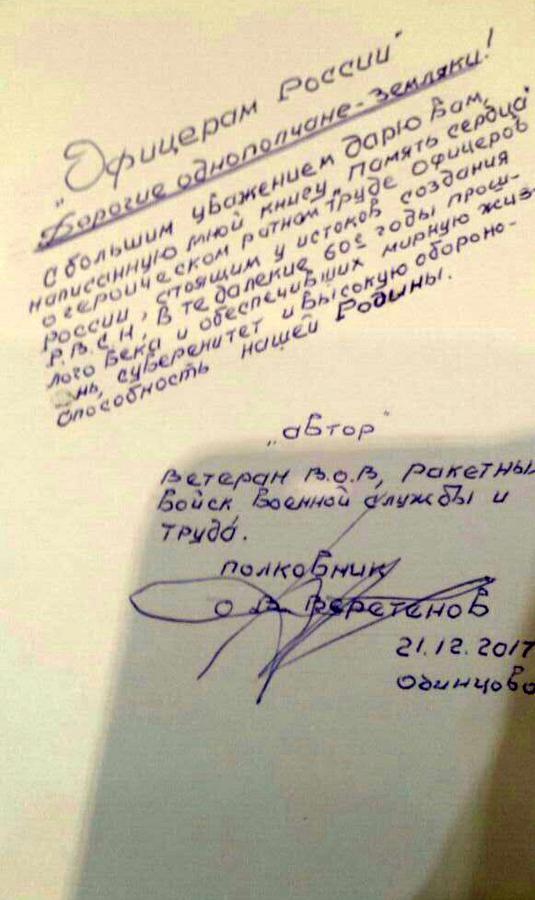 "Офицерам России"
Дорогие однополчане-земляки!
С большим уважением дарю Вам,
написанную мной книгу, "Память сердца"
о героическом ратном труде офицеров
России, стоящим у истоков создания
Р.В.С.Н. В те далекие 60е годы прош-
лого века и обеспечивших мирную жиз-
нь, суверенитет и высокую обороно-
способность нашей Родины.
"автор"
Ветеран В.О.В, ракетных
Войск Военной службы и
труда.
полковник
О.В. Веретенов
21.12.2017
Одинцово